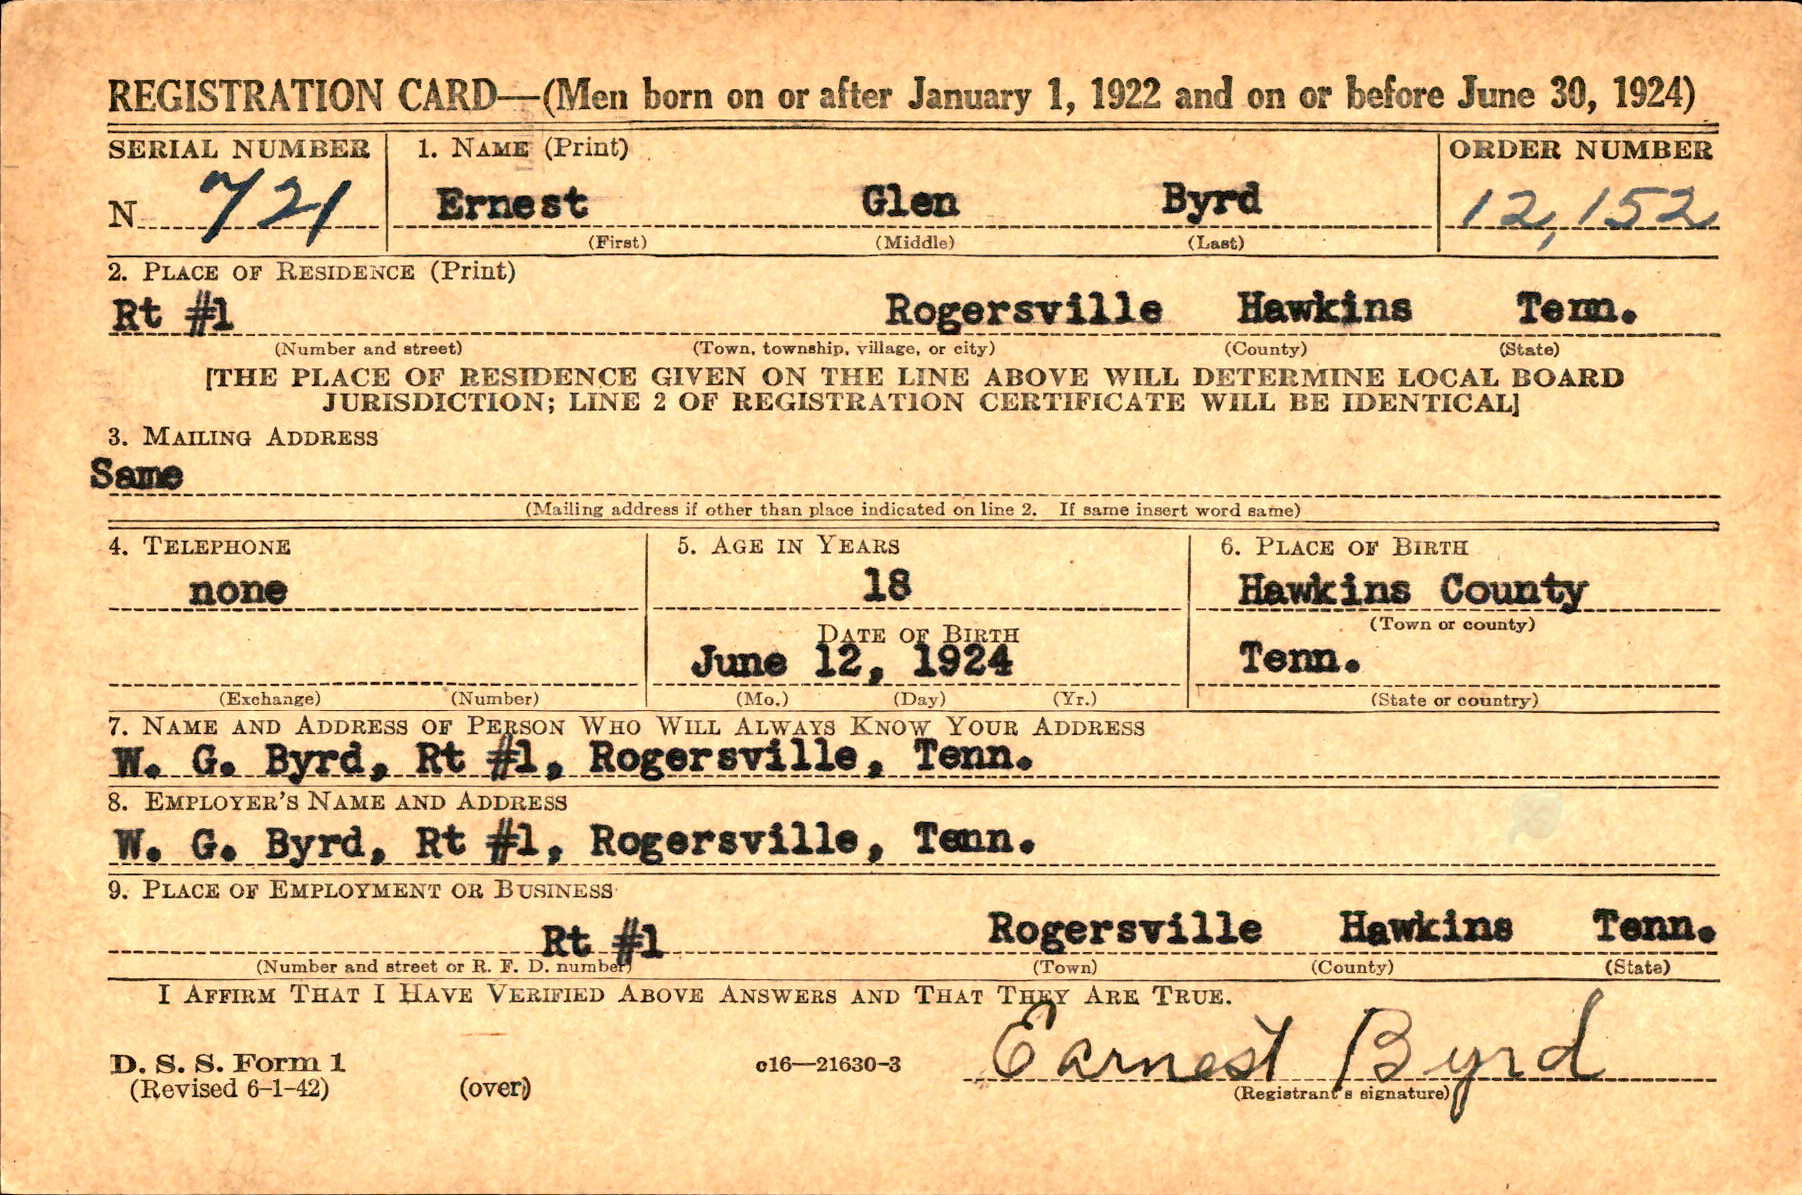 REGISTRATION CARD—(Men born on or after January 1, 1922 and on or before June 30, 1924)
SERIAL NUMBER 1. NAME (Print) ORDER NUMBER
N 721 Ernest Glen Byrd 12,152
(First) (Middle) (Last)
2. PLACE OF RESIDENCE (Print)
Rt #1 Rogersville Hawkins Tenn.
(Number and street) (Town, township, village, or city) (County) (State)
[THE PLACE OF RESIDENCE GIVEN ON THE LINE ABOVE WILL DETERMINE LOCAL BOARD
JURISDICTION; LINE 2 OF REGISTRATION CERTIFICATE WILL BE IDENTICAL]
3. MAILING ADDRESS
Same
(Mailing address if other than place indicated on line 2. If same insert word same)
4. TELEPHONE 5. AGE IN YEARS 6. PLACE OF BIRTH
none 18 Hawkins County
(Town or county)
DATE OF BIRTH
June 12, 1924 Tenn.
(Exchange) (Number) (Mo.) (Day) (Yr.) (State or country)
7. NAME AND ADDRESS OF PERSON WHO WILL ALWAYS KNOW YOUR ADDRESS
W. G. Byrd, Rt #1, Rogersville, Tenn.
8. EMPLOYER'S NAME AND ADDRESS
W. G. Byrd, Rt #1, Rogersville, Tenn.
9. PLACE OF EMPLOYMENT OR BUSINESS
Rt #1 Rogersville Hawkins Tenn.
(Number and street or R. F. D. number) (Town) (County) (State)
I AFFIRM THAT I HAVE VERIFIED ABOVE ANSWERS AND THAT THEY ARE TRUE.
D. S. S. Form 1 c16—21630-3 Earnest Byrd
(Revised 6-1-42) (over) (Registrant's signature)